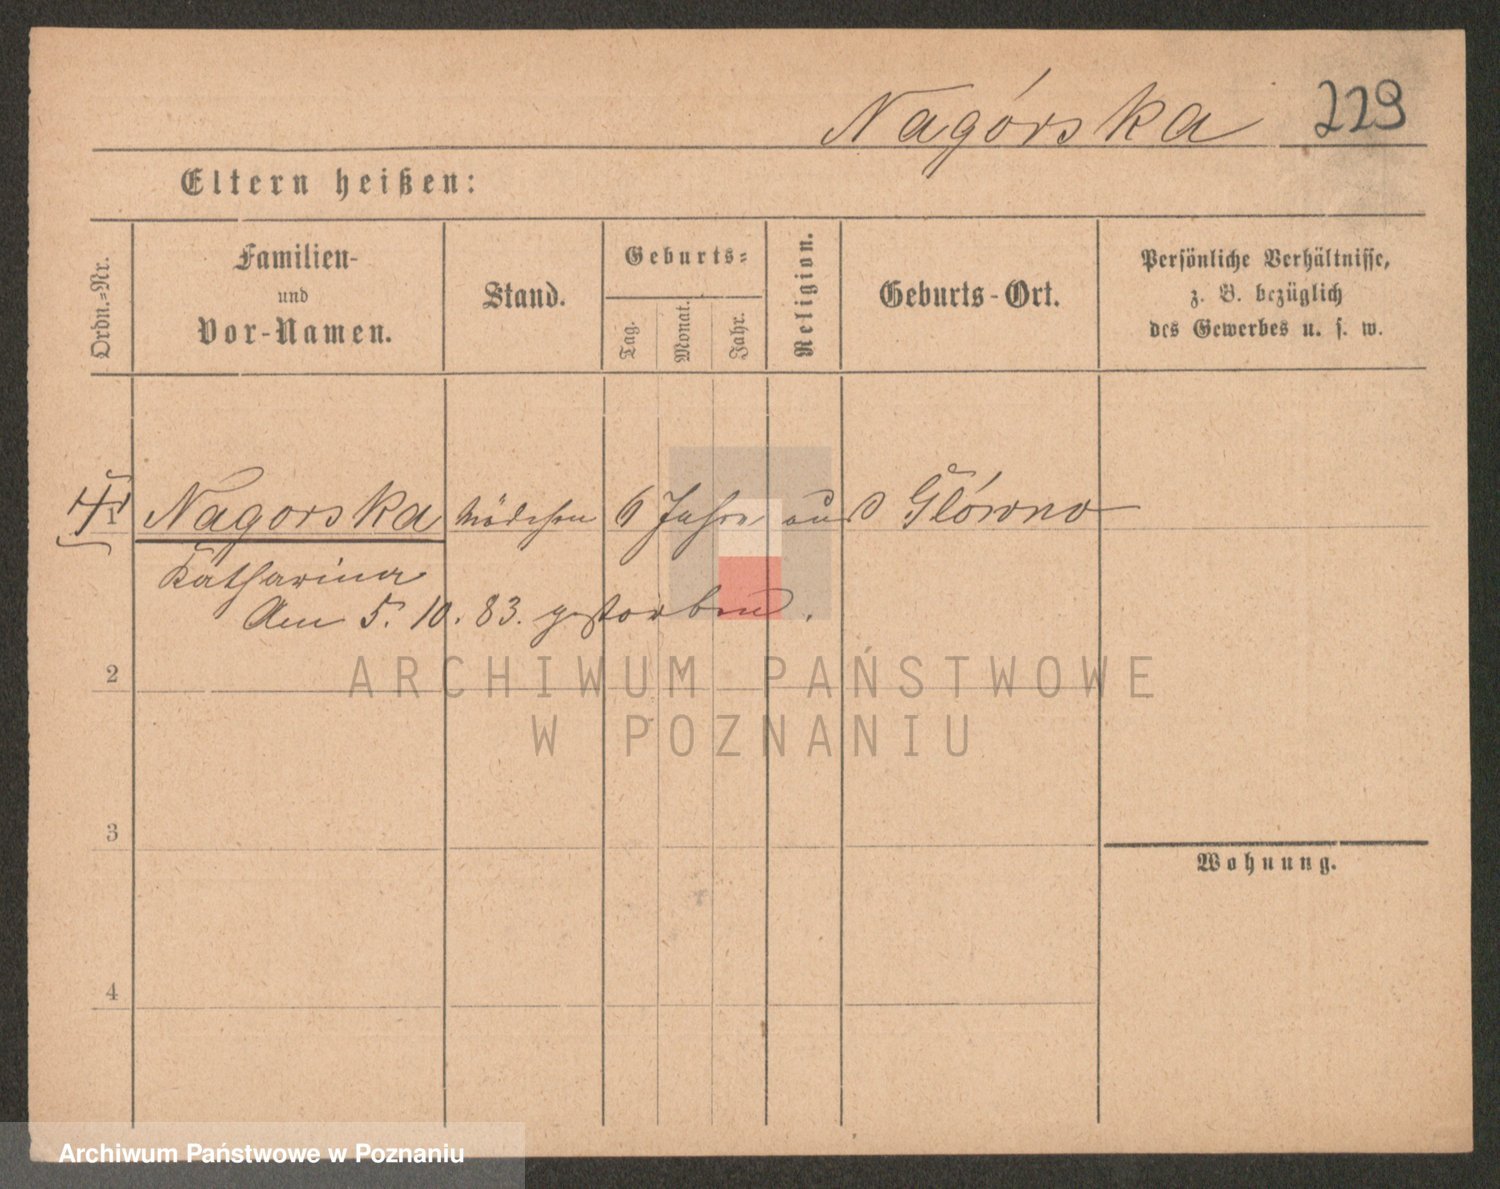 Nagórska 229
Eltern heißen:
Ordn.=Nr.
Familien-
und
Vor-Namen.
Stand.
Geburts=
Tag.
Monat.
Jahr.
Religion.
Geburts-Ort.
Persönliche Verhältnisse,
z. B. bezüglich
des Gewerbes u. s. w.
1 Nagorska Mädchen 6 Jahre aus Glówno
Katharina
Am 5. 10. 83. gestorben.
2
ARCHIWUM PAŃSTWOWE
W POZNANIU
3
Wohnung.
4
Archiwum Państwowe w Poznaniu